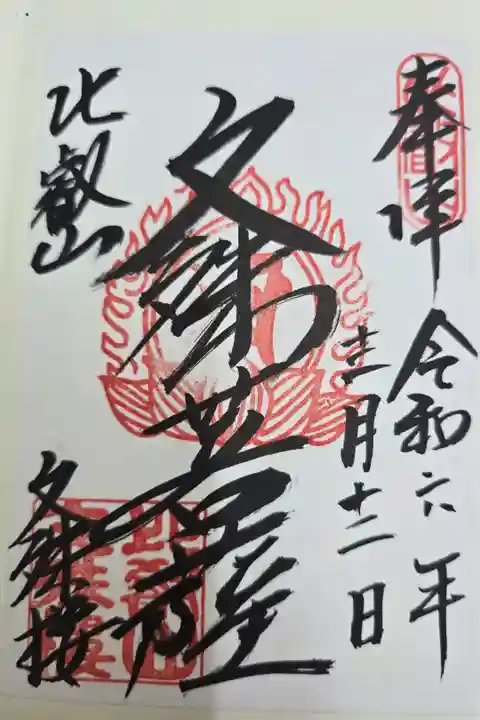 奉拝
令和六年
十一月十二日
文殊菩薩
比叡山
文殊楼